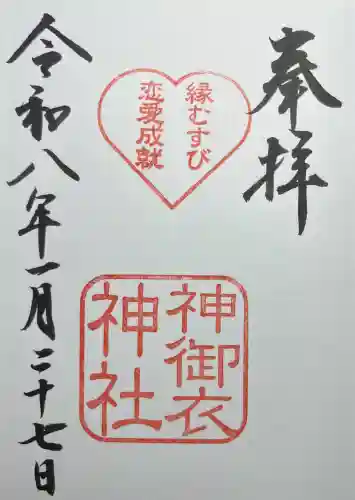 奉拝
縁むすび
恋愛成就
神御衣
神社
令和八年一月二十七日